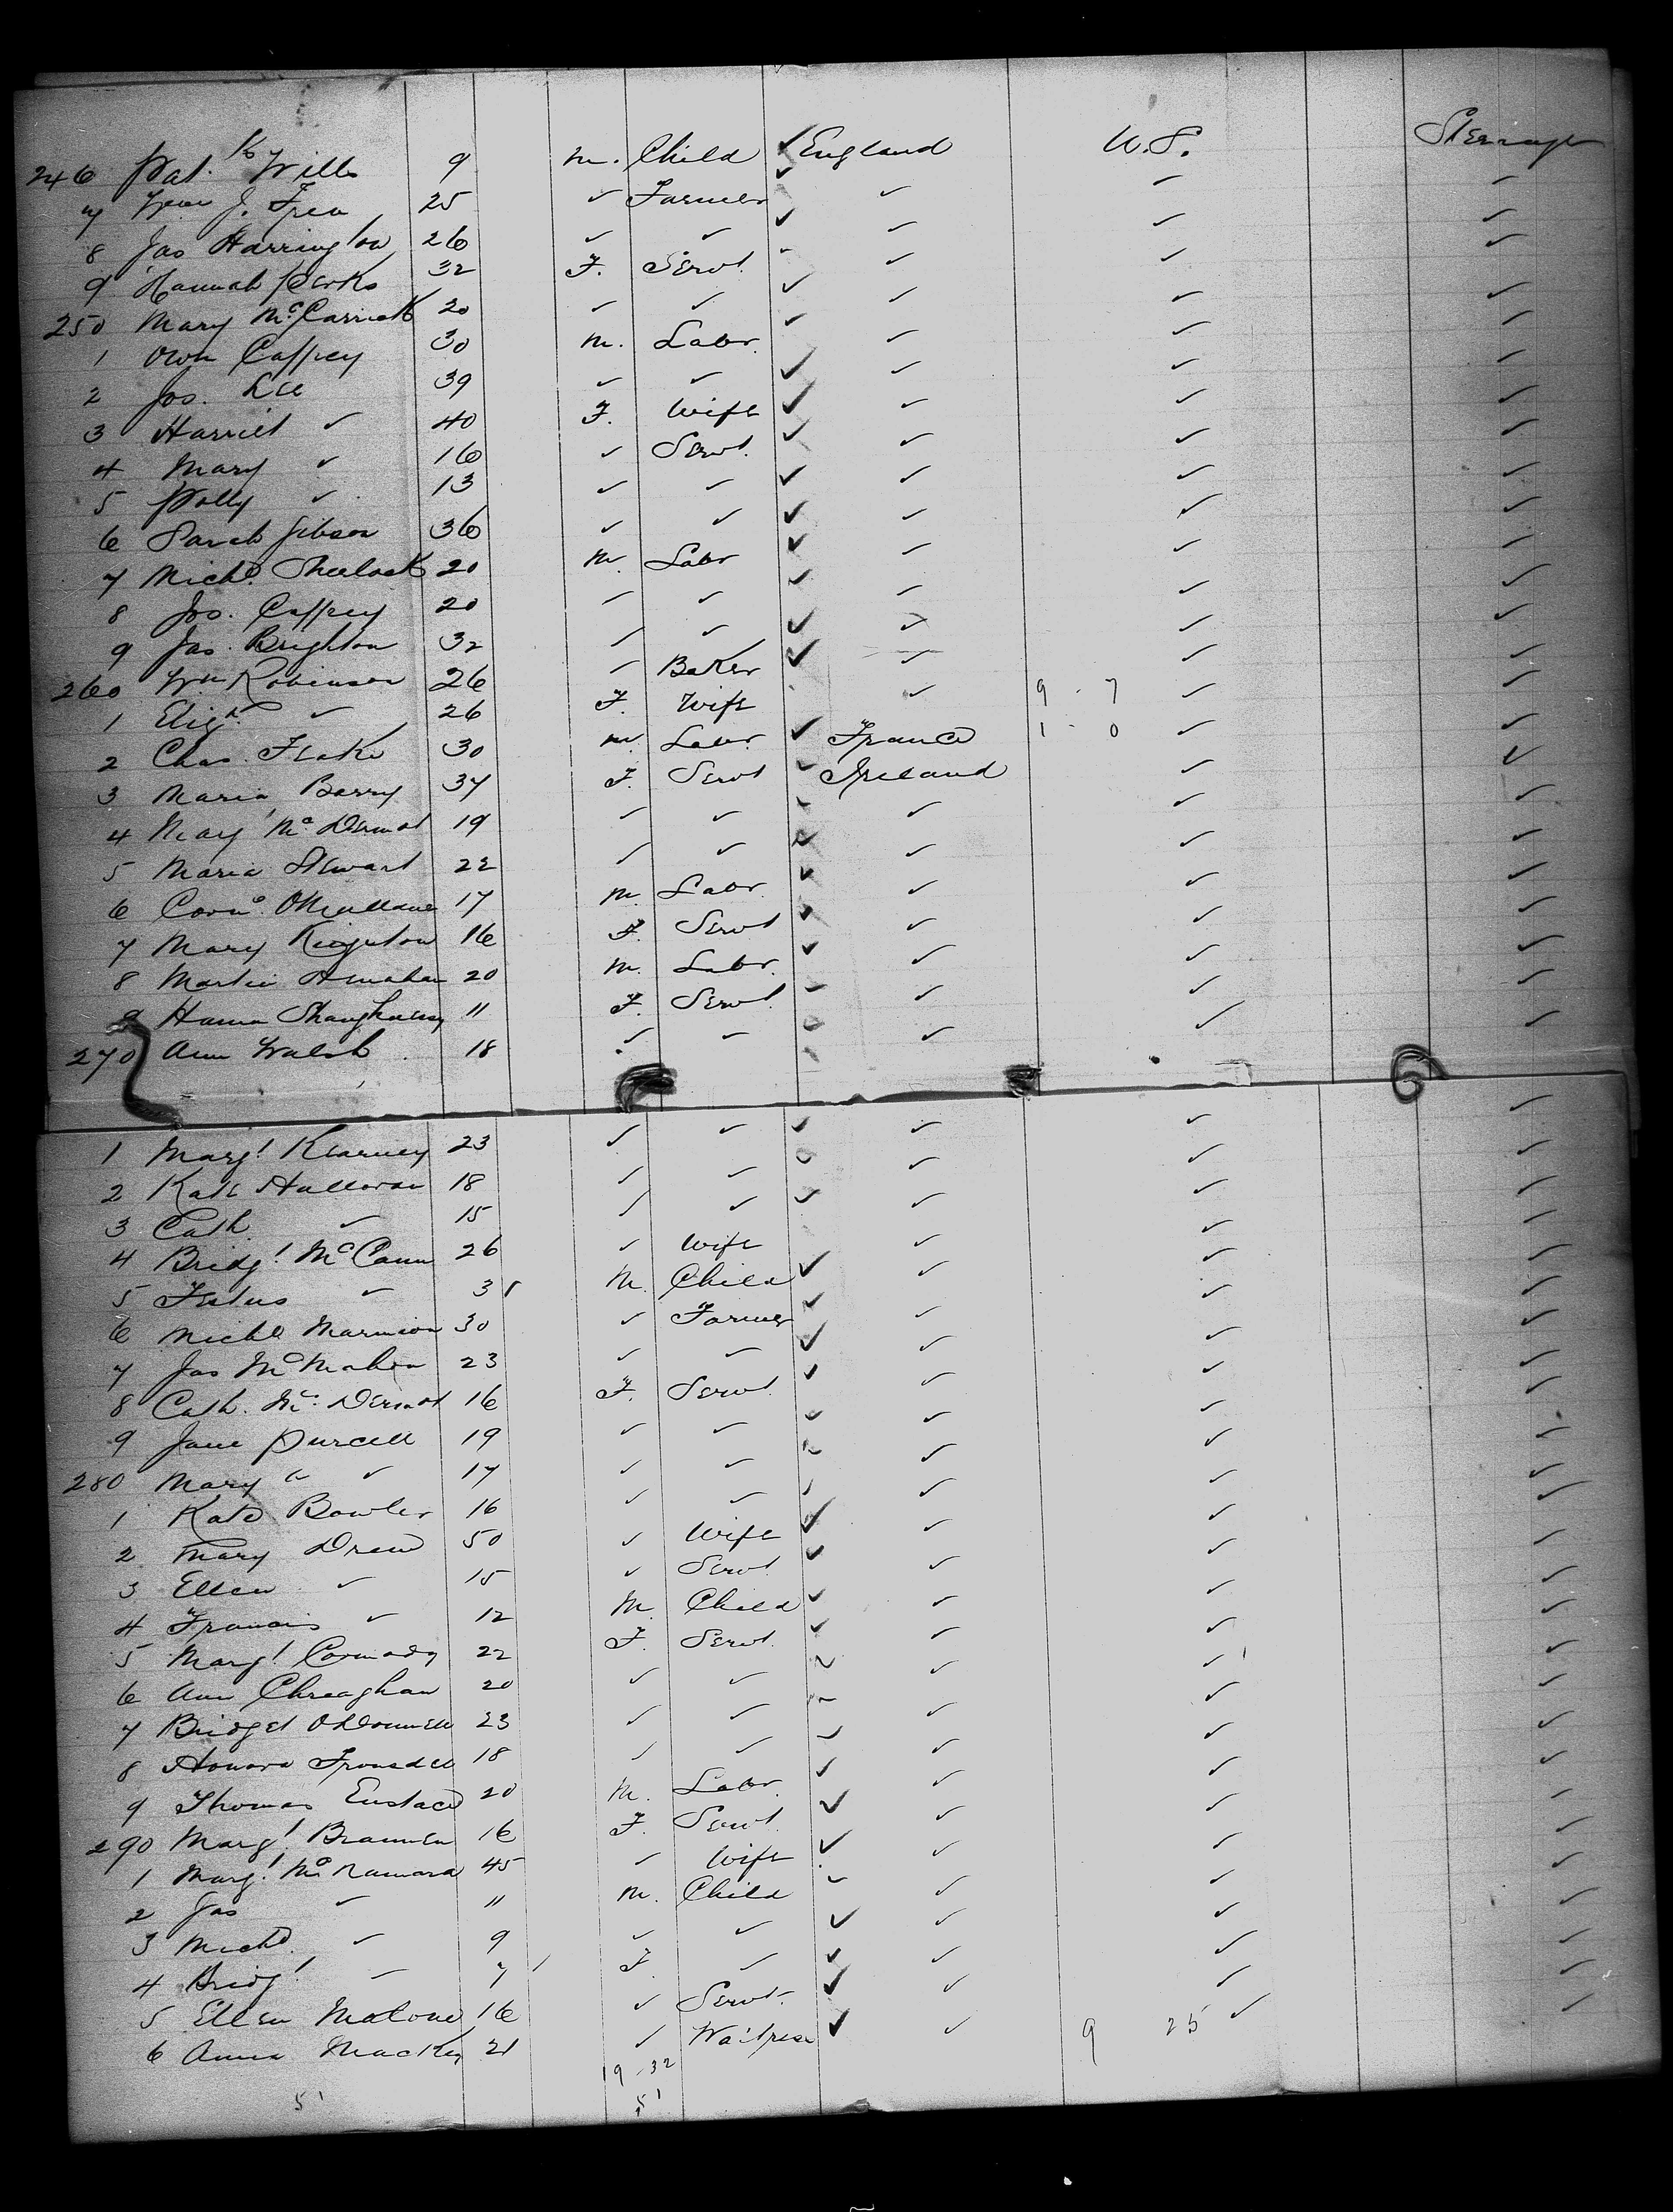 246 Pat. Wills 9 m. Child ✓ England U.S. Steerage
7 Wm J. Frew 25 ✓ Farmer ✓ ✓ ✓ ✓
8 Jas Harrington 26 ✓ ✓ ✓ ✓ ✓ ✓
9 Hannah Perks 32 F. Servt. ✓ ✓ ✓
250 Mary McCarrick 20 ✓ ✓ ✓ ✓ ✓ ✓
1 Own Caffrey 30 m. Labr. ✓ ✓ ✓ ✓
2 Jos. Lee 39 ✓ ✓ ✓ ✓ ✓ ✓
3 Harriet ✓ 40 F. Wife ✓ ✓ ✓ ✓
4 Mary ✓ 16 ✓ Servt. ✓ ✓ ✓ ✓
5 Polly ✓ 13 ✓ ✓ ✓ ✓ ✓ ✓
6 Sarah Gibson 36 ✓ ✓ ✓ ✓ ✓ ✓
7 Michl. Sherlock 20 m. Labr ✓ ✓ ✓ ✓
8 Jos. Caffrey 20 ✓ ✓ ✓ ✓ ✓ ✓
9 Jas. Brighton 32 ✓ ✓ ✓ ✓ ✓ ✓
260 Wm Robinson 26 ✓ Baker ✓ ✓ ✓ ✓
1 Elizh. ✓ 26 F. Wife ✓ 9 - 7 ✓ ✓
2 Chas. 30 m. Labr. ✓ France 1 - 0 ✓ ✓
3 Maria Barry 37 F. Servt ✓ Ireland ✓ ✓
4 May McDermot 19 ✓ ✓ ✓ ✓ ✓ ✓
5 Maria Stewart 22 ✓ ✓ ✓ ✓ ✓ ✓
6 Corns. 17 m. Labr. ✓ ✓ ✓ ✓
7 Mary 16 F. Servt ✓ ✓ ✓ ✓
8 Martin 20 m. Labr. ✓ ✓ ✓ ✓
9 Hanna Shaughnessy 11 F. Servt. ✓ ✓ ✓ ✓
270 Ann Walsh 18 ✓ ✓ ✓ ✓ ✓ ✓
1 Margt Kearney 23 ✓ ✓ ✓ ✓ ✓ ✓
2 Kate Halloran 18 ✓ ✓ ✓ ✓ ✓ ✓
3 Cath. ✓ 15 ✓ ✓ ✓ ✓ ✓ ✓
4 Bridgt McCann 26 ✓ Wife ✓ ✓ ✓
5 Festus ✓ 3 M. Child ✓ ✓ ✓ ✓
6 Michl Marmion 30 ✓ Farmer ✓ ✓ ✓ ✓
7 Jas McMahon 23 ✓ ✓ ✓ ✓ ✓ ✓
8 Cath. McDermot 16 F. Servt. ✓ ✓ ✓ ✓
9 Jane Purcell 19 ✓ ✓ ✓ ✓ ✓ ✓
280 Mary a ✓ 17 ✓ ✓ ✓ ✓ ✓ ✓
1 Kate Bowler 16 ✓ ✓ ✓ ✓ ✓ ✓
2 Mary Drew 50 ✓ Wife ✓ ✓ ✓ ✓
3 Ellen ✓ 15 ✓ Servt ✓ ✓ ✓ ✓
4 Francis ✓ 12 M. Child ✓ ✓ ✓ ✓
5 Margt Cormody 22 F. Servt. ✓ ✓ ✓ ✓
6 Ann Chreaghan 20 ✓ ✓ ✓ ✓ ✓ ✓
7 Bridget ODonnell 23 ✓ ✓ ✓ ✓ ✓ ✓
8 Honora 18 ✓ ✓ ✓ ✓ ✓ ✓
9 Thomas Eustace 20 M. Labr. ✓ ✓ ✓ ✓
290 Margt Brannen 16 F. Servt. ✓ ✓ ✓ ✓
1 Margt McNamara 45 ✓ Wife ✓ ✓ ✓ ✓
2 Jas ✓ 11 M. Child ✓ ✓ ✓ ✓
3 Michl. ✓ 9 ✓ ✓ ✓ ✓ ✓ ✓
4 Bridgt ✓ 7 F. ✓ ✓ ✓ ✓ ✓
5 Ellen Malone 16 ✓ Servt. ✓ ✓ ✓ ✓
6 Anna Mackey 21 ✓ Waitress ✓ ✓ 9 25 ✓ ✓
19 - 32
51 51